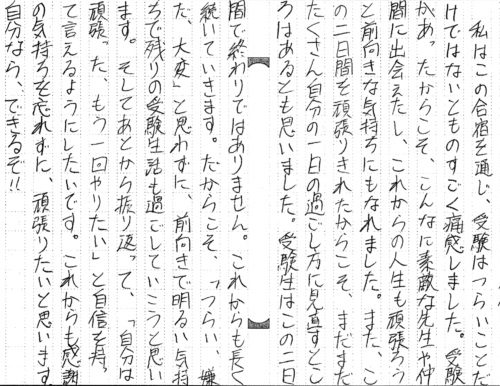 私はこの合宿を通じ、受験はつらいことだ
けではないとものすごく痛感しました。受験
があったからこそ、こんなに素敵な先生や仲
間に出会えたし、これからの人生も頑張ろう
と前向きな気持ちにもなれました。また、こ
の二日間を頑張りきれたからこそ、まだまだ
たくさん自分の一日の過ごし方に見直すとこ
ろはあるとも思いました。受験生はこの二日
間で終わりではありません。これからも長く
続いていきます。だからこそ、「つらい、嫌
だ、大変」と思わずに、前向きで明るい気持
ちで残りの受験生活も過ごしていこうと思い
ます。そしてあとから振り返って、「自分は
頑張った、もう一回やりたい」と自信を持っ
て言えるようにしたいです。これからも感謝
の気持ちを忘れずに、頑張りたいと思います
自分なら、できるぞ!!